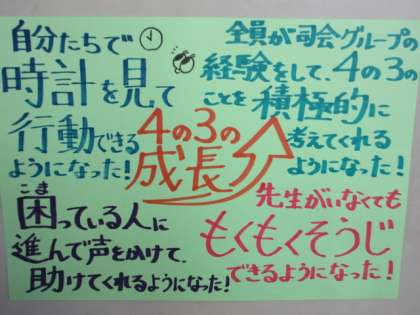 自分たちで
時計を見て
行動できる
ようになった!
全員が司会グループの
経験をして、4の3の
ことを積極的に
考えてくれる
ようになった!
4の3の
成長
こま
困っている人に
進んで声をかけて、
助けてくれるようになった!
先生がいなくても
もくもくそうじ
できるようになった!